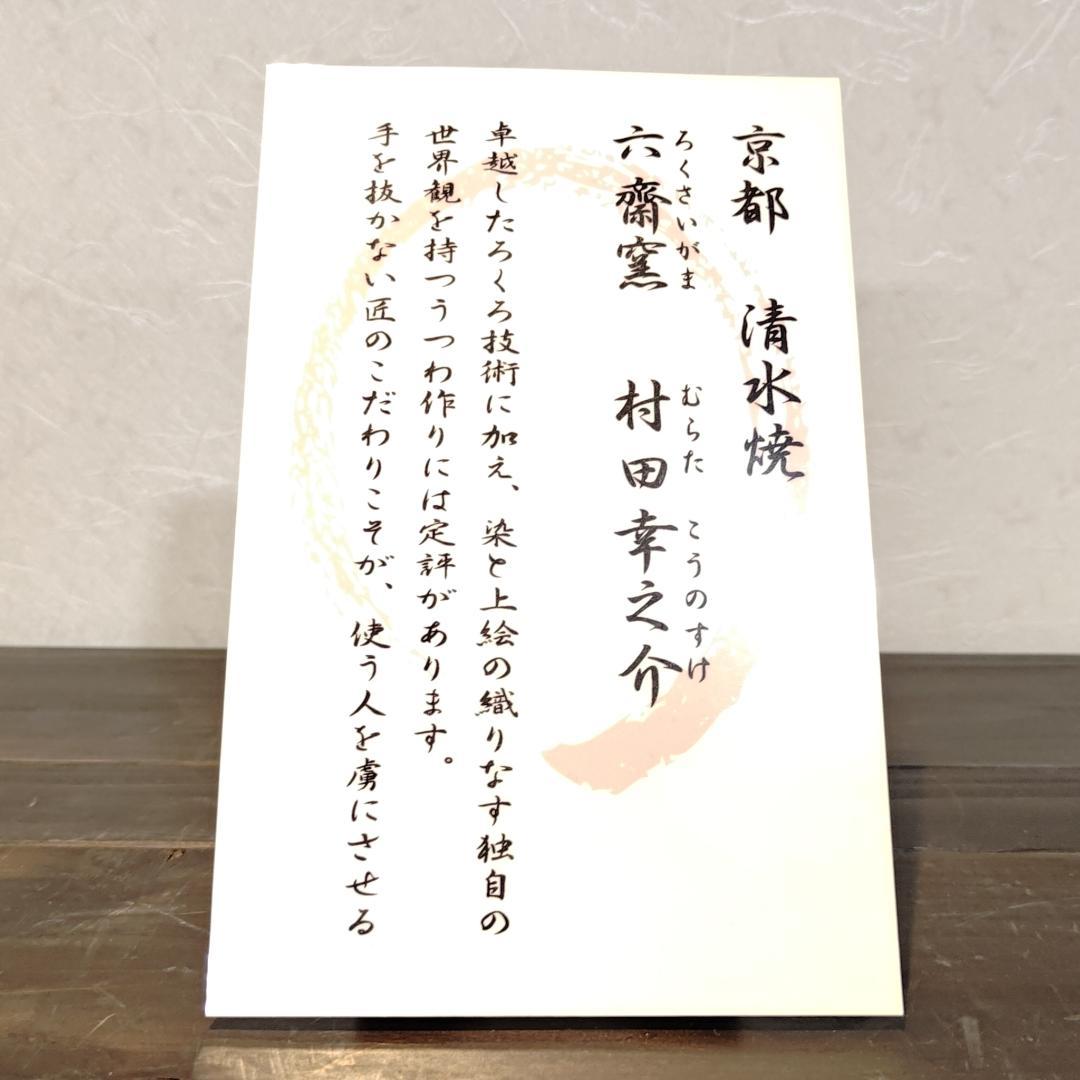 京都　清水焼
ろくさいがま　むらた　こうのすけ
六齋窯　村田幸之介
卓越したろくろ技術に加え、染と上絵の織りなす独自の
世界観を持つうつわ作りには定評があります。
手を抜かない匠のこだわりこそが、使う人を虜にさせる